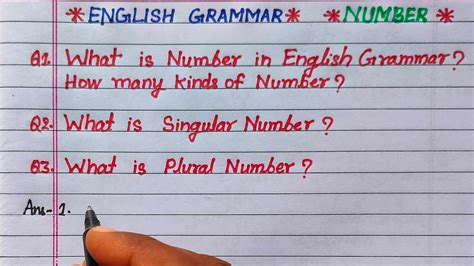 *ENGLISH GRAMMAR* *NUMBER*
Q1. What is Number in English Grammar?
How many kinds of Number?
Q2. What is Singular Number?
Q3. What is Plural Number?
Ans- 1.